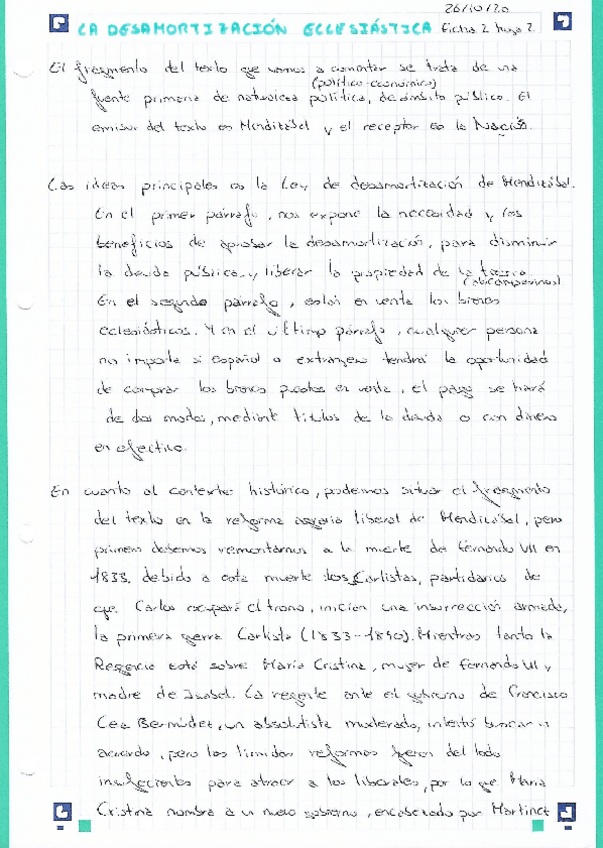 26/10/20
LA DESAMORTIZACIÓN ECLESIÁSTICA Ficha 2 hoja 2
El fragmento del texto que vamos a comentar se trata de una
(político-económico)
fuente primaria de naturaleza política, de ámbito público. El
emisor del texto es Mendizábal y el receptor es la Nación.
Las ideas principales es la Ley de desamortización de Mendizábal.
En el primer párrafo, nos expone la necesidad y los
beneficios de aprobar la desamortización, para disminuir
la deuda pública y liberar la propiedad de la
En el segundo párrafo, están en venta los bienes
eclesiásticos. Y en el último párrafo, cualquier persona
no importa si español o extranjero tendrá la oportunidad
de comprar los bienes puestos en venta, el pago se hará
de dos modos, mediante títulos de la deuda o con dinero
en efectivo.
En cuanto al contexto histórico, podemos situar el fragmento
del texto en la reforma agraria liberal de Mendizábal, pero
primero debemos remontarnos a la muerte de Fernando VII en
1833, debido a esta muerte los Carlistas, partidarios de
que Carlos ocupará el trono, inician una insurrección armada,
la primera guerra Carlista (1833-1840). Mientras tanto la
Regencia está sobre María Cristina, mujer de Fernando VII y
madre de Isabel. La regente ante el gobierno de Francisco
Cea Bermúdez, un absolutista moderado, intentó buscar un
acuerdo, pero las tímidas reformas fueron del todo
insuficientes para atraer a los liberales, por lo que María
Cristina nombra a un nuevo gobierno, encabezado por Martínez